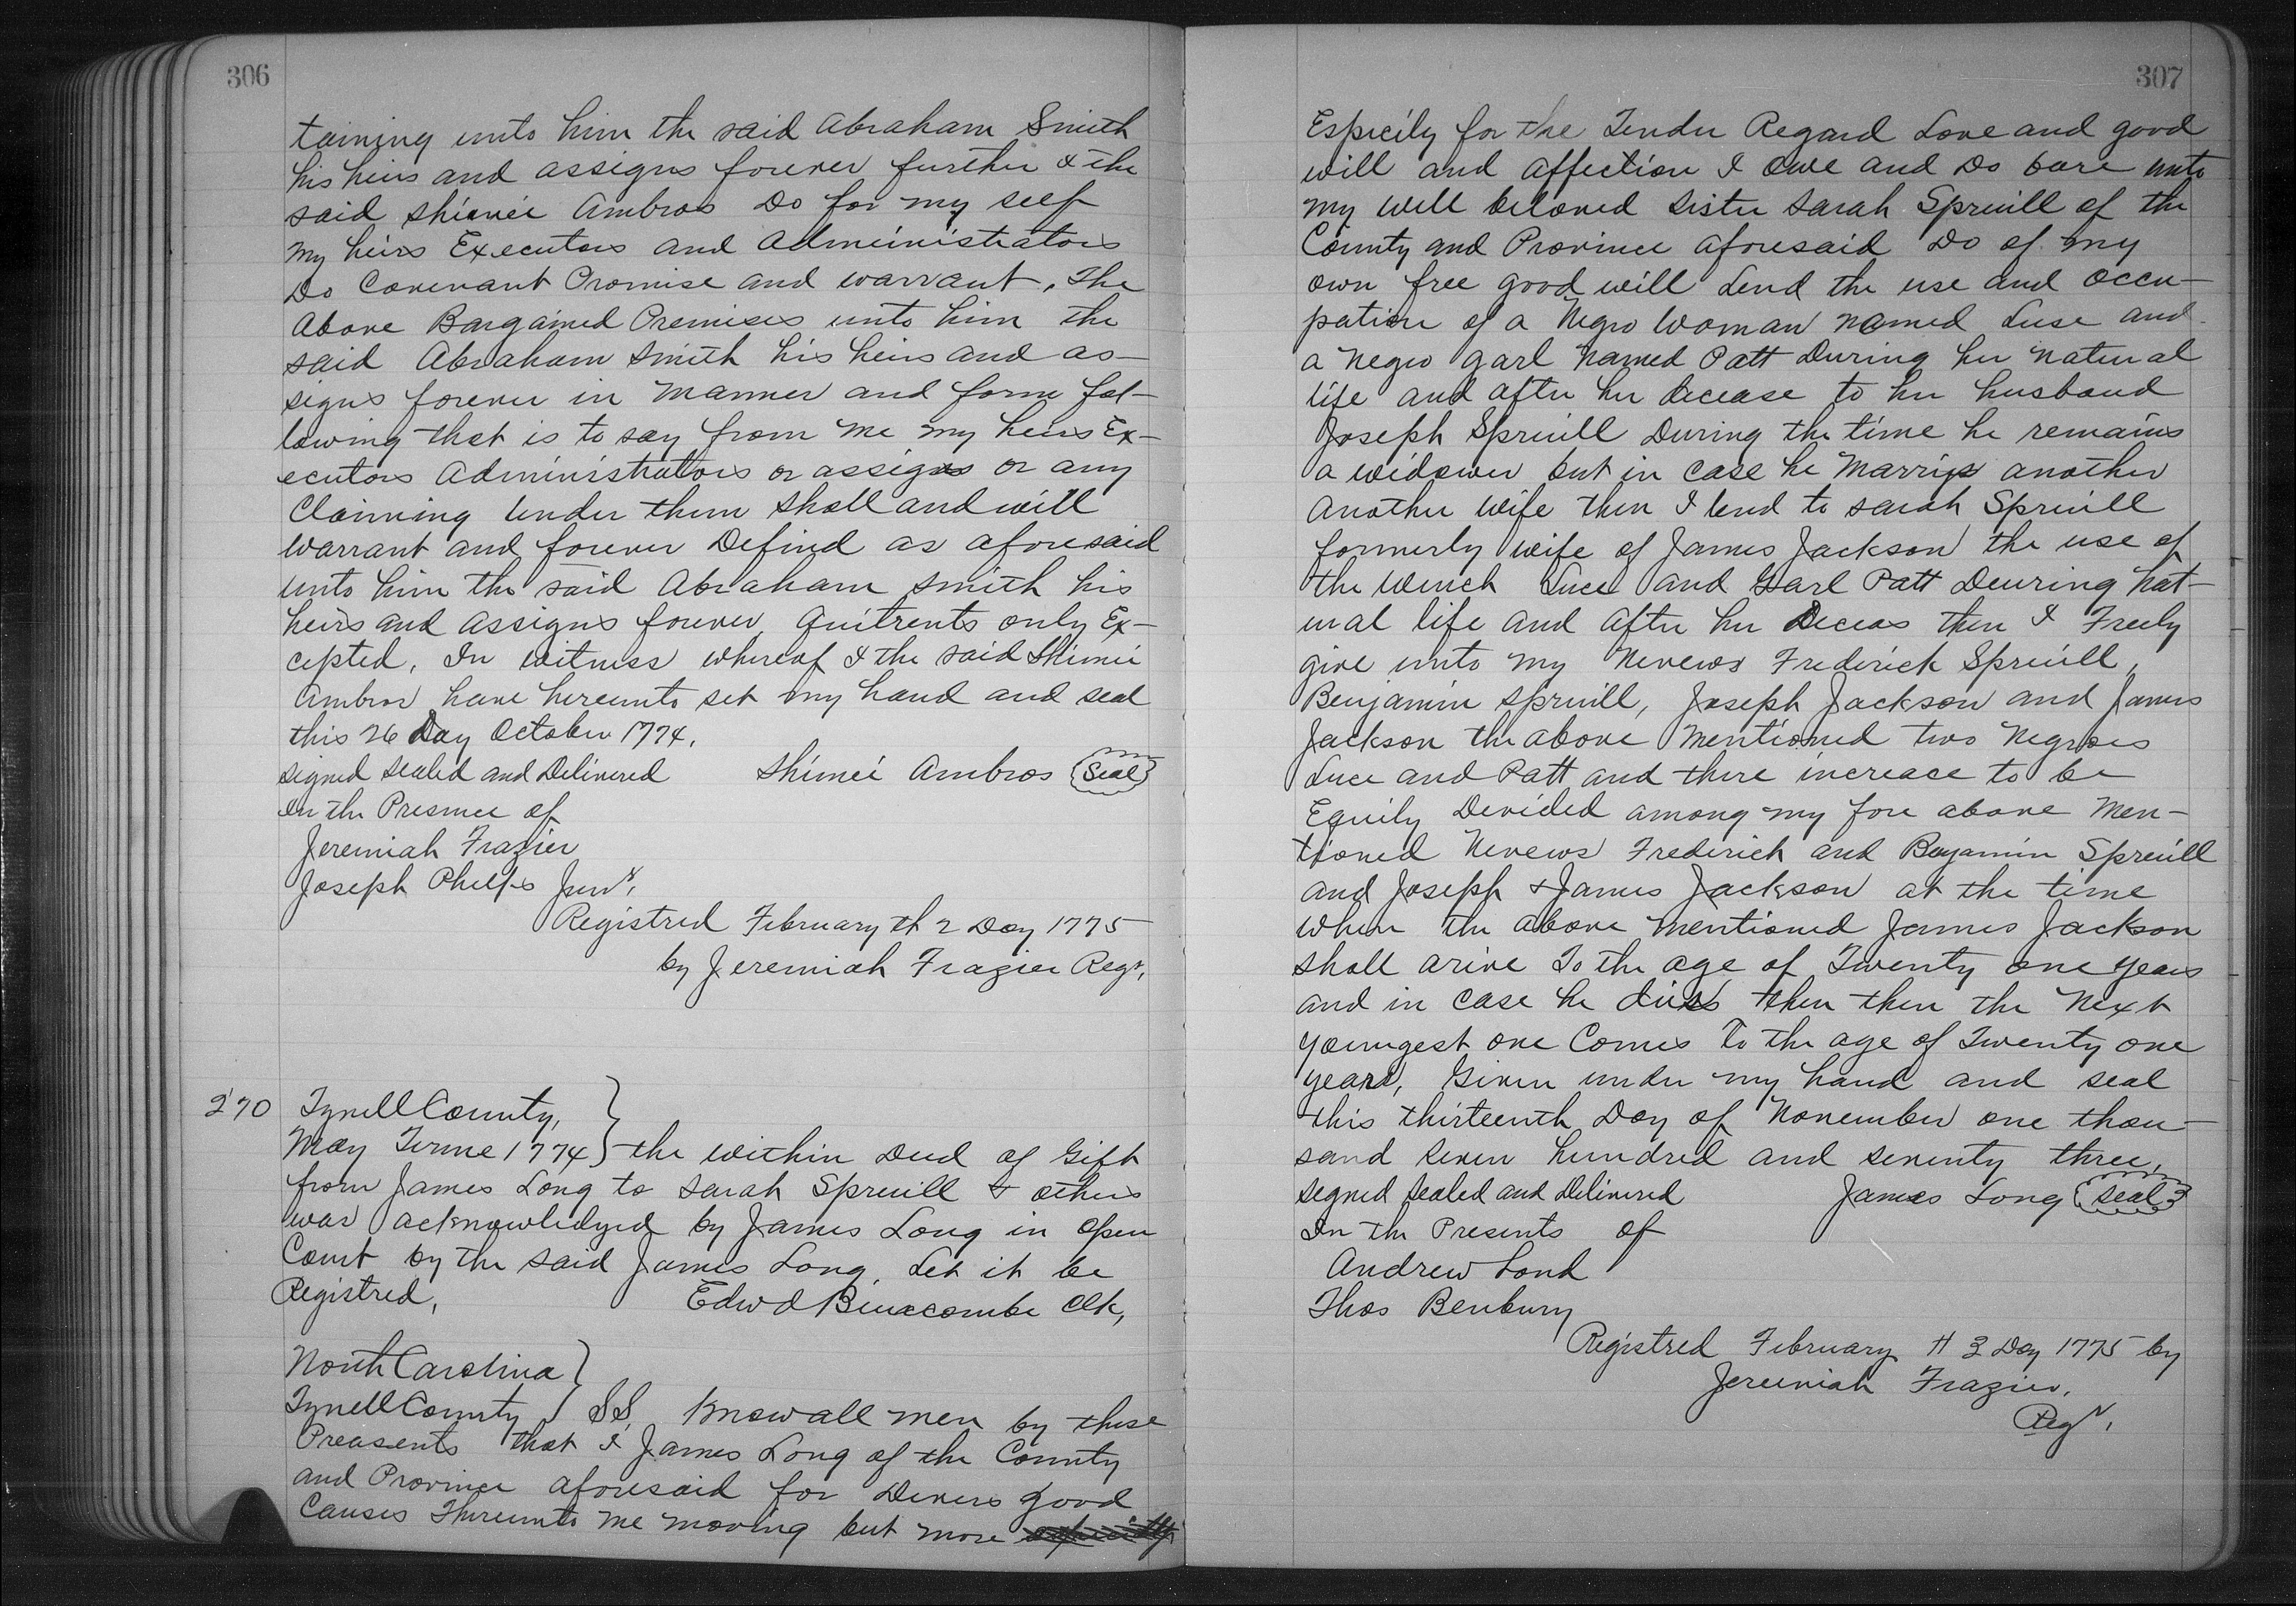 306
taining unto him the said Abraham Smith
his heirs and assigns forever further I the
said Shimei Ambros Do for my self
my heirs Executors and Administrators
Do Covenant Promise and warrant, The
above Bargained Premises unto him the
said Abraham Smith his heirs and as-
signs forever in manner and form fol-
lowing that is to say from me my heirs Ex-
ecutors Administrators or assigns or any
Claiming under them shall and will
warrant and forever Defind as aforesaid
unto him the said Abraham Smith his
heirs and assigns forever, Quitrents only Ex-
cepted, In witness whereof I the said Shimei
Ambros have hereunto set my hand and seal
this 26 Day October 1774.
Signed sealed and Delivered Shimei Ambros (Seal)
In the Presence of
Jeremiah Frazier
Joseph Phelps Junr,
Registred February th 2 Day 1775
by Jeremiah Frazier Regr,
270 Tyrrell County, }
May Terme 1774 } the within Deed of Gift
from James Long to Sarah Spruill & others
was acknowledged by James Long in open
Court by the said James Long. Let it be
Registred, Edwd Buncombe Clk,
North Carolina }
Tyrrell County } SS, Know all men by these
Preasents that I James Long of the County
and Province aforesaid for Divers good
Causes Thereunto me moving but more
307
Espicily for the Tender Regard Love and good
will and affection I owe and Do bare unto
my well beloved sister Sarah Spruill of the
County and Province aforesaid Do of my
own free good will Lend the use and occu-
pation of a Negro Woman named Luse and
a Negro garl named Patt During her natural
life and after her Decease to her husband
Joseph Spruill During the time he remains
a widower but in case he Marrys another
another wife then I lend to Sarah Spruill
formerly wife of James Jackson the use of
the wench Luce and Garl Patt Deuring Nat-
ural life and after her Deceas then I Freely
give unto my Nevews Frederick Spruill,
Benjamin Spruill, Joseph Jackson and James
Jackson the above mentioned two Negroes
Luce and Patt and there increase to be
Equily Devided among my fore above men-
tioned Nevews Frederick and Benjamin Spruill
and Joseph & James Jackson at the time
when the above mentioned James Jackson
shall arive To the age of Twenty one years
and in case he dies then then the Next
youngest one Comes to the age of Twenty one
years, Given under my hand and seal
this thirteenth Day of November one thou-
sand seven hundred and seventy three,
Signed sealed and Delivered James Long (Seal)
In the Presents of
Andrew Long
Thos Benbury
Registred February th 3 Day 1775 by
Jeremiah Frazier.
Regr,